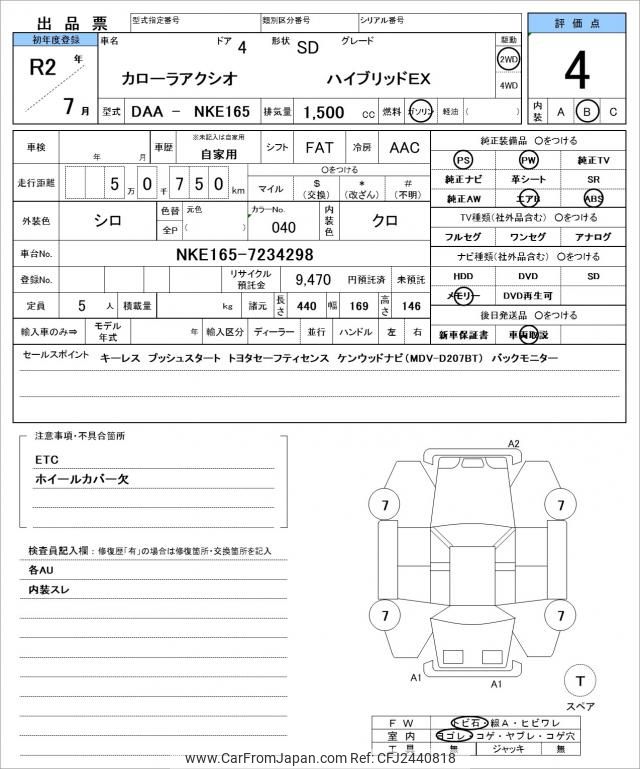 出品票
型式指定番号 類別区分番号 シリアル番号
評価点
初年度登録
R2 年
7 月
車名 ドア 4 形状 SD グレード
カローラアクシオ ハイブリッドEX
駆動
2WD
4WD
4
型式 DAA － NKE165 排気量 1,500 CC 燃料 ガソリン 軽油 ( )
内装 A B C
車検 年 月 車歴 ※未記入は自家用 自家用 シフト FAT 冷房 AAC
走行距離 5 万 0 千 7 5 0 km
○をつける
マイル $（交換） *（改ざん） #（不明）
外装色 シロ 色替 全P 元色 ( ) カラーNo. 040 内装色 クロ
車台No. NKE165-7234298
登録No. リサイクル預託金 9,470 円預託済 未預託
定員 5 人 積載量 kg 諸元 長さ 440 幅 169 高さ 146
輸入車のみ⇒ モデル年式 年 輸入区分 ディーラー 並行 ハンドル 左 右
純正装備品 ○をつける
PS PW 純正TV
純正ナビ 革シート SR
純正AW エアB ABS
TV種類(社外品含む) ○をつける
フルセグ ワンセグ アナログ
ナビ種類(社外品含む) ○をつける
HDD DVD SD
メモリー DVD再生可
後日発送品 ○をつける
新車保証書 車両取説
セールスポイント キーレス プッシュスタート トヨタセーフティセンス ケンウッドナビ（MDV-D207BT） バックモニター
注意事項・不具合箇所
ETC
ホイールカバー欠
検査員記入欄：修復歴「有」の場合は修復箇所・交換箇所を記入
各AU
内装スレ
A2
7 7
7 7
A1 A1
T
スペア
FW トビ石・線A・ヒビワレ
室内 ヨゴレ・コゲ・ヤブレ・コゲ穴
工具 無 ジャッキ 無
www.CarFromJapan.com Ref: CFJ2440818